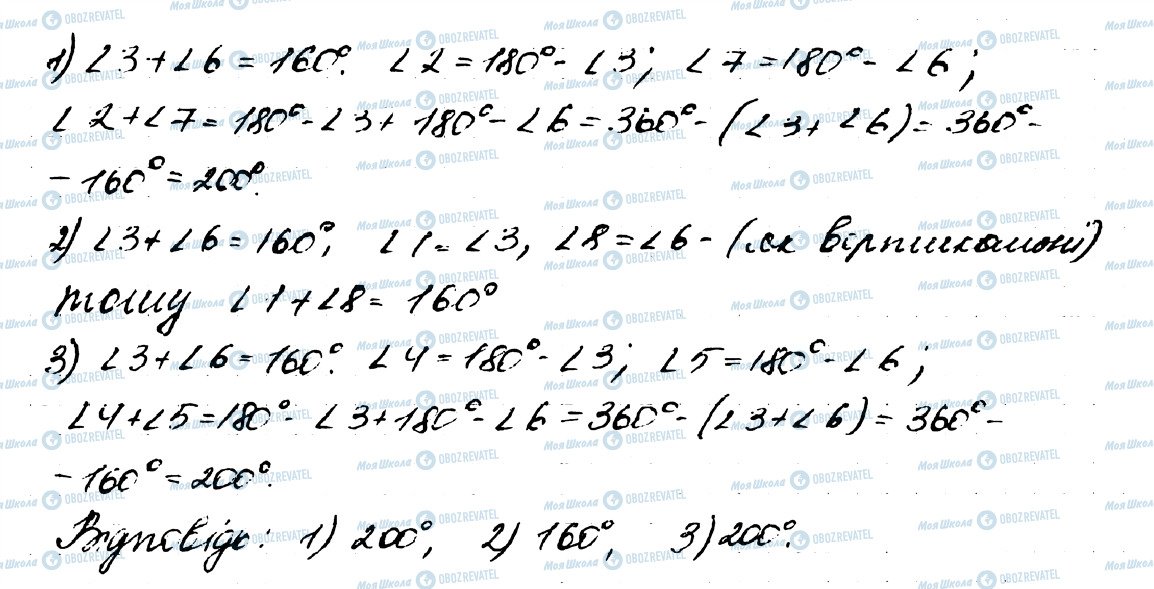 1) ∠3+∠6=160°. ∠2=180°-∠3; ∠7=180°-∠6;
∠2+∠7=180°-∠3+180°-∠6=360°-(∠3+∠6)=360°-
-160°=200°.
2) ∠3+∠6=160°, ∠1=∠3, ∠8=∠6-(як вертикальні)
тому ∠1+∠8=160°
3) ∠3+∠6=160°. ∠4=180°-∠3; ∠5=180°-∠6;
∠4+∠5=180°-∠3+180°-∠6=360°-(∠3+∠6)=360°-
-160°=200°.
Відповідь: 1) 200°, 2) 160°, 3) 200°.